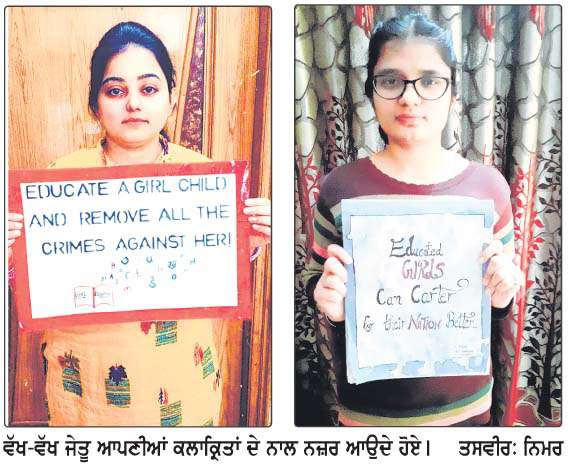 EDUCATE A GIRL CHILD
AND REMOVE ALL THE
CRIMES AGAINST HER!
Educated
GIRLS
Can Carter
for their NATION Better.
ਵੱਖ-ਵੱਖ ਜੇਤੂ ਆਪਣੀਆਂ ਕਲਾਕ੍ਰਿਤਾਂ ਦੇ ਨਾਲ ਨਜ਼ਰ ਆਉਦੇ ਹੋਏ। ਤਸਵੀਰ: ਨਿਮਰ